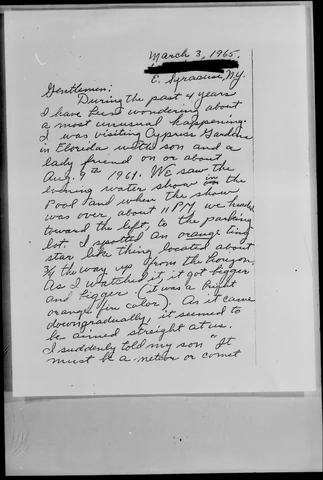 March 3, 1965.
E. Syracuse, N.Y.
Gentlemen:
During the past 4 years
I have been wondering about
a most unusual happening.
I was visiting Cypress Gardens
in Florida with son and a
lady friend on or about
Aug. 9th 1961. We saw the
evening water show in the
Pool and when the show
was over, about 11 PM we headed
toward the left, to the parking
lot. I spotted an orange tiny
star like thing located about
3/4 the way up from the horizon.
As I watched it, it got bigger
and bigger (it was a bright
orange in color). As it came
down gradually, it seemed to
be aimed straight at us.
I suddenly told my son "It
must be a meteor or comet